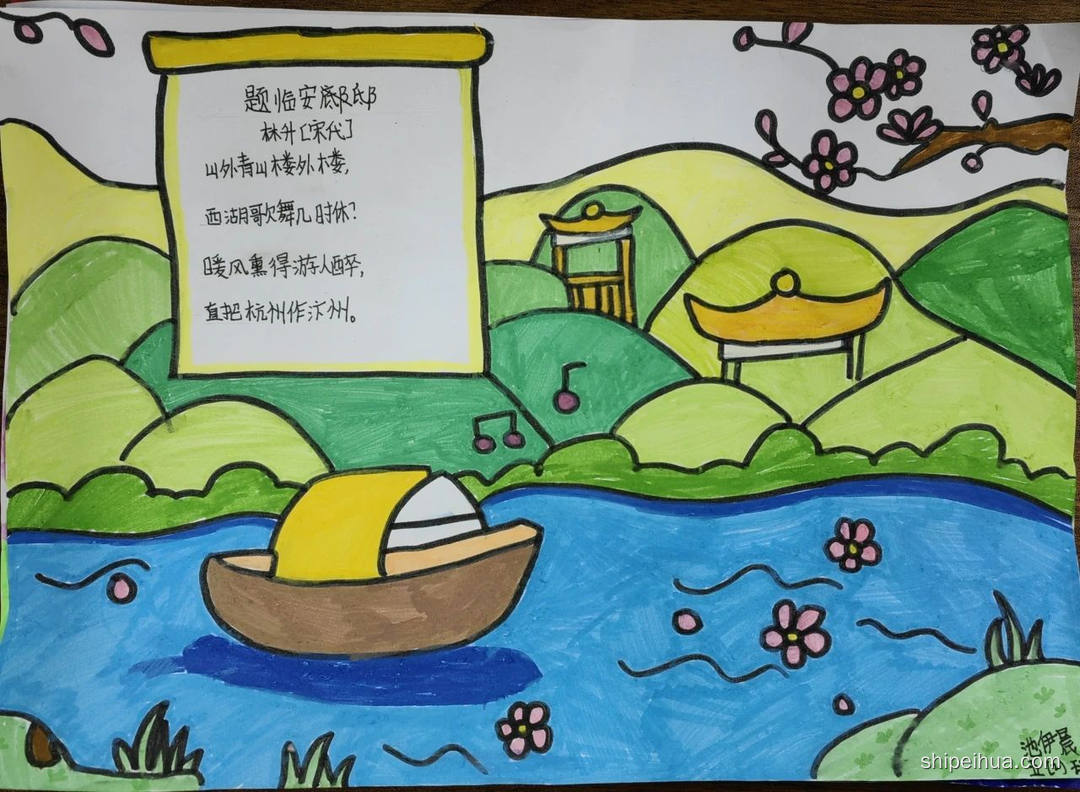 题临安邸
林升[宋代]
山外青山楼外楼,
西湖歌舞几时休?
暖风熏得游人醉,
直把杭州作汴州。
池伊晨
shipeihua.com